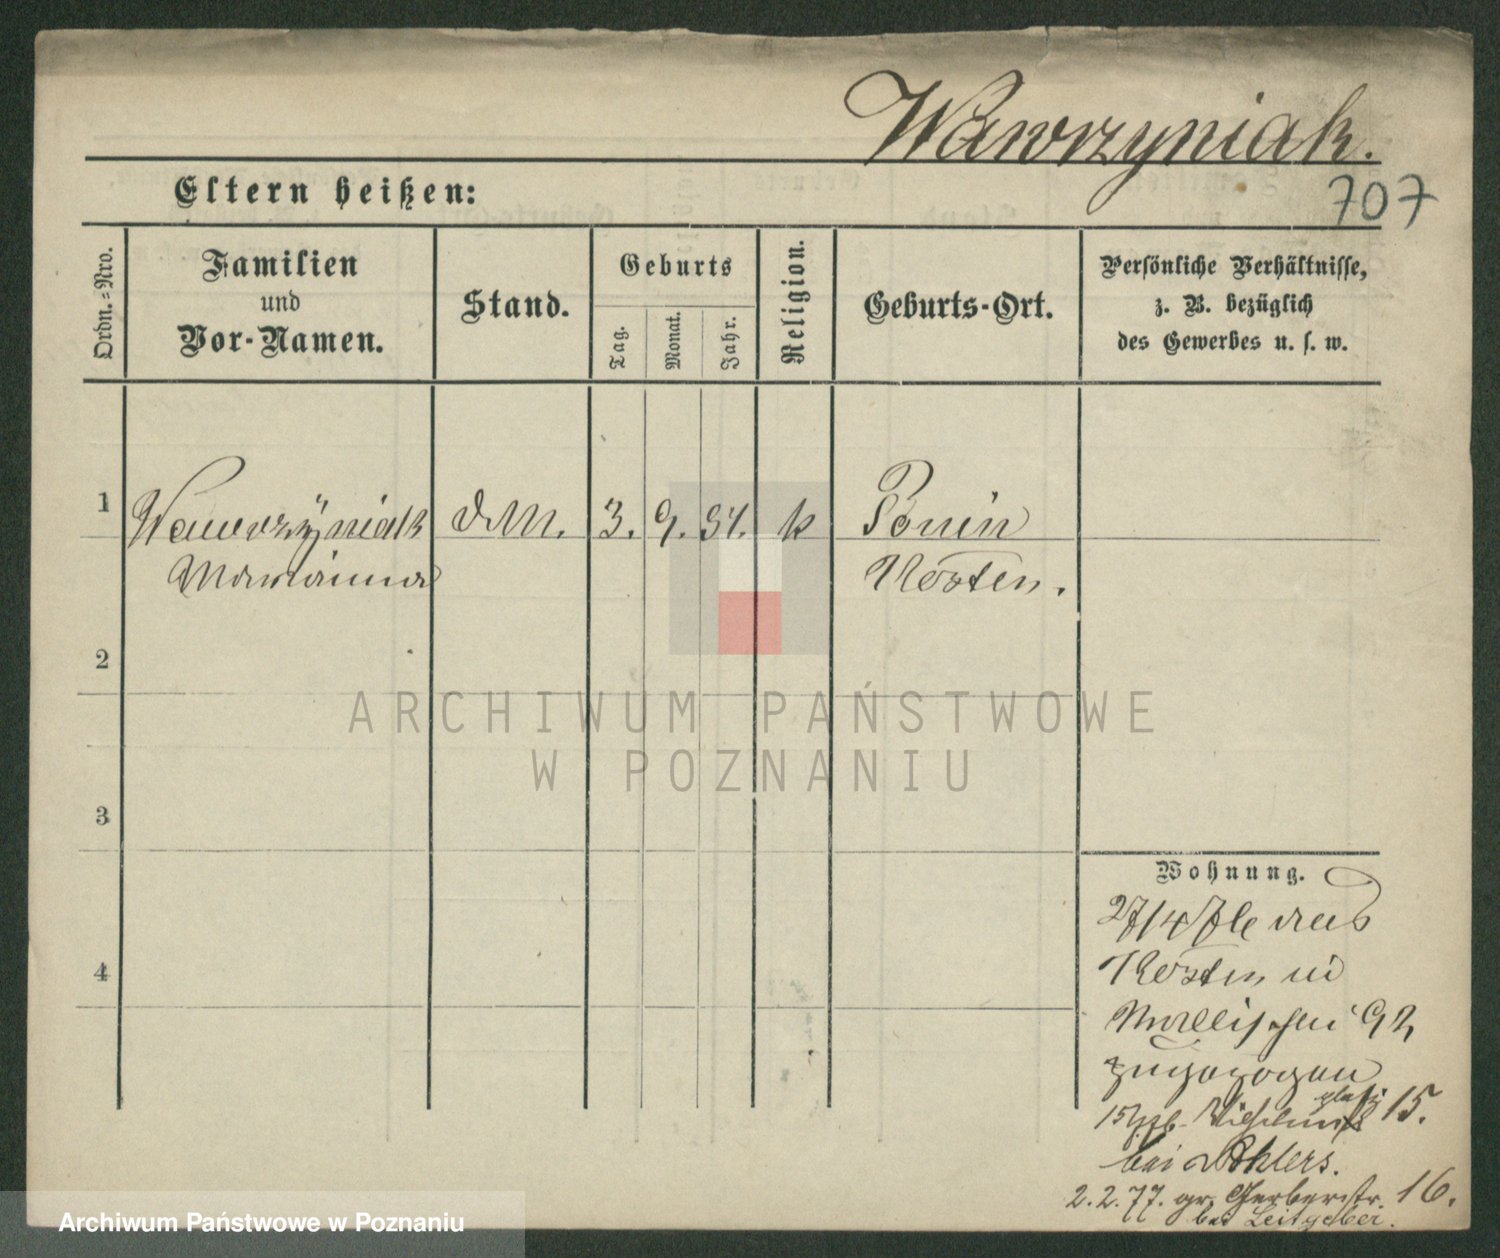 Wawrzyniak.
707
Eltern heißen:
Ordn.-Nro.
Familien
und
Vor-Namen.
Stand.
Geburts
Tag.
Monat.
Jahr.
Religion.
Geburts-Ort.
Persönliche Verhältnisse,
z. B. bezüglich
des Gewerbes u. s. w.
1
Wawrzyniak
Marianna
d. M.
3.
9.
54.
k
Ponin
Kosten.
2
3
4
Wohnung.
27/4 76 aus
Kosten in
Wallischei 92
zugezogen
Wilhelms platz 15.
bei Ohlers.
2.2.77. gr. Gerberstr. 16.
bei Leitgeber.
ARCHIWUM PAŃSTWOWE
W POZNANIU
Archiwum Państwowe w Poznaniu